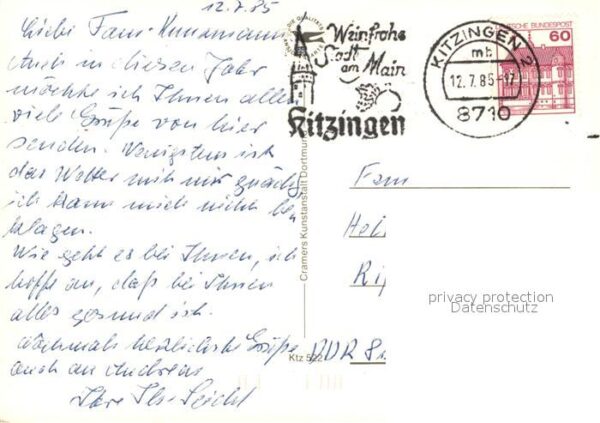 12.7.85
Liebe Fam.
Auch in diesem Jahr
möchte ich Ihnen allen
viele Grüße von hier
senden. Wenigstens ist
das Wetter mit mir gnädig
ich kann mich nicht be
klagen.
Wie geht es bei Ihnen, ich
hoffe an, daß bei Ihnen
alles gesund ist.
Nochmals herzlichste Grüße
auch an Andreas
Ihre
Weinfrohe
Stadt
am Main
Kitzingen
KITZINGEN 2
mh
12.7.85-17
8710
DEUTSCHE BUNDESPOST
60
Cramers Kunstanstalt Dortmund
Ktz 522
Fam
DDR
privacy protection
Datenschutz